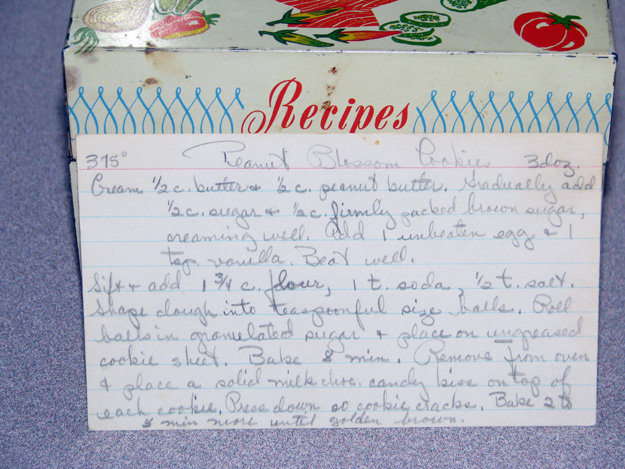 Recipes
375° Peanut Blossom Cookies 3 doz.
Cream 1/2 c. butter & 1/2 c. peanut butter. Gradually add
1/2 c. sugar & 1/2 c. firmly packed brown sugar,
creaming well. Add 1 unbeaten egg & 1
tsp. vanilla. Beat well.
Sift & add 1 3/4 c. flour, 1 t. soda, 1/2 t. salt.
Shape dough into teaspoonful size balls. Roll
balls in granulated sugar & place on ungreased
cookie sheet. Bake 8 min. Remove from oven
& place a solid milk choc. candy kiss on top of
each cookie. Press down so cookie cracks. Bake 2 to
5 min more until golden brown.